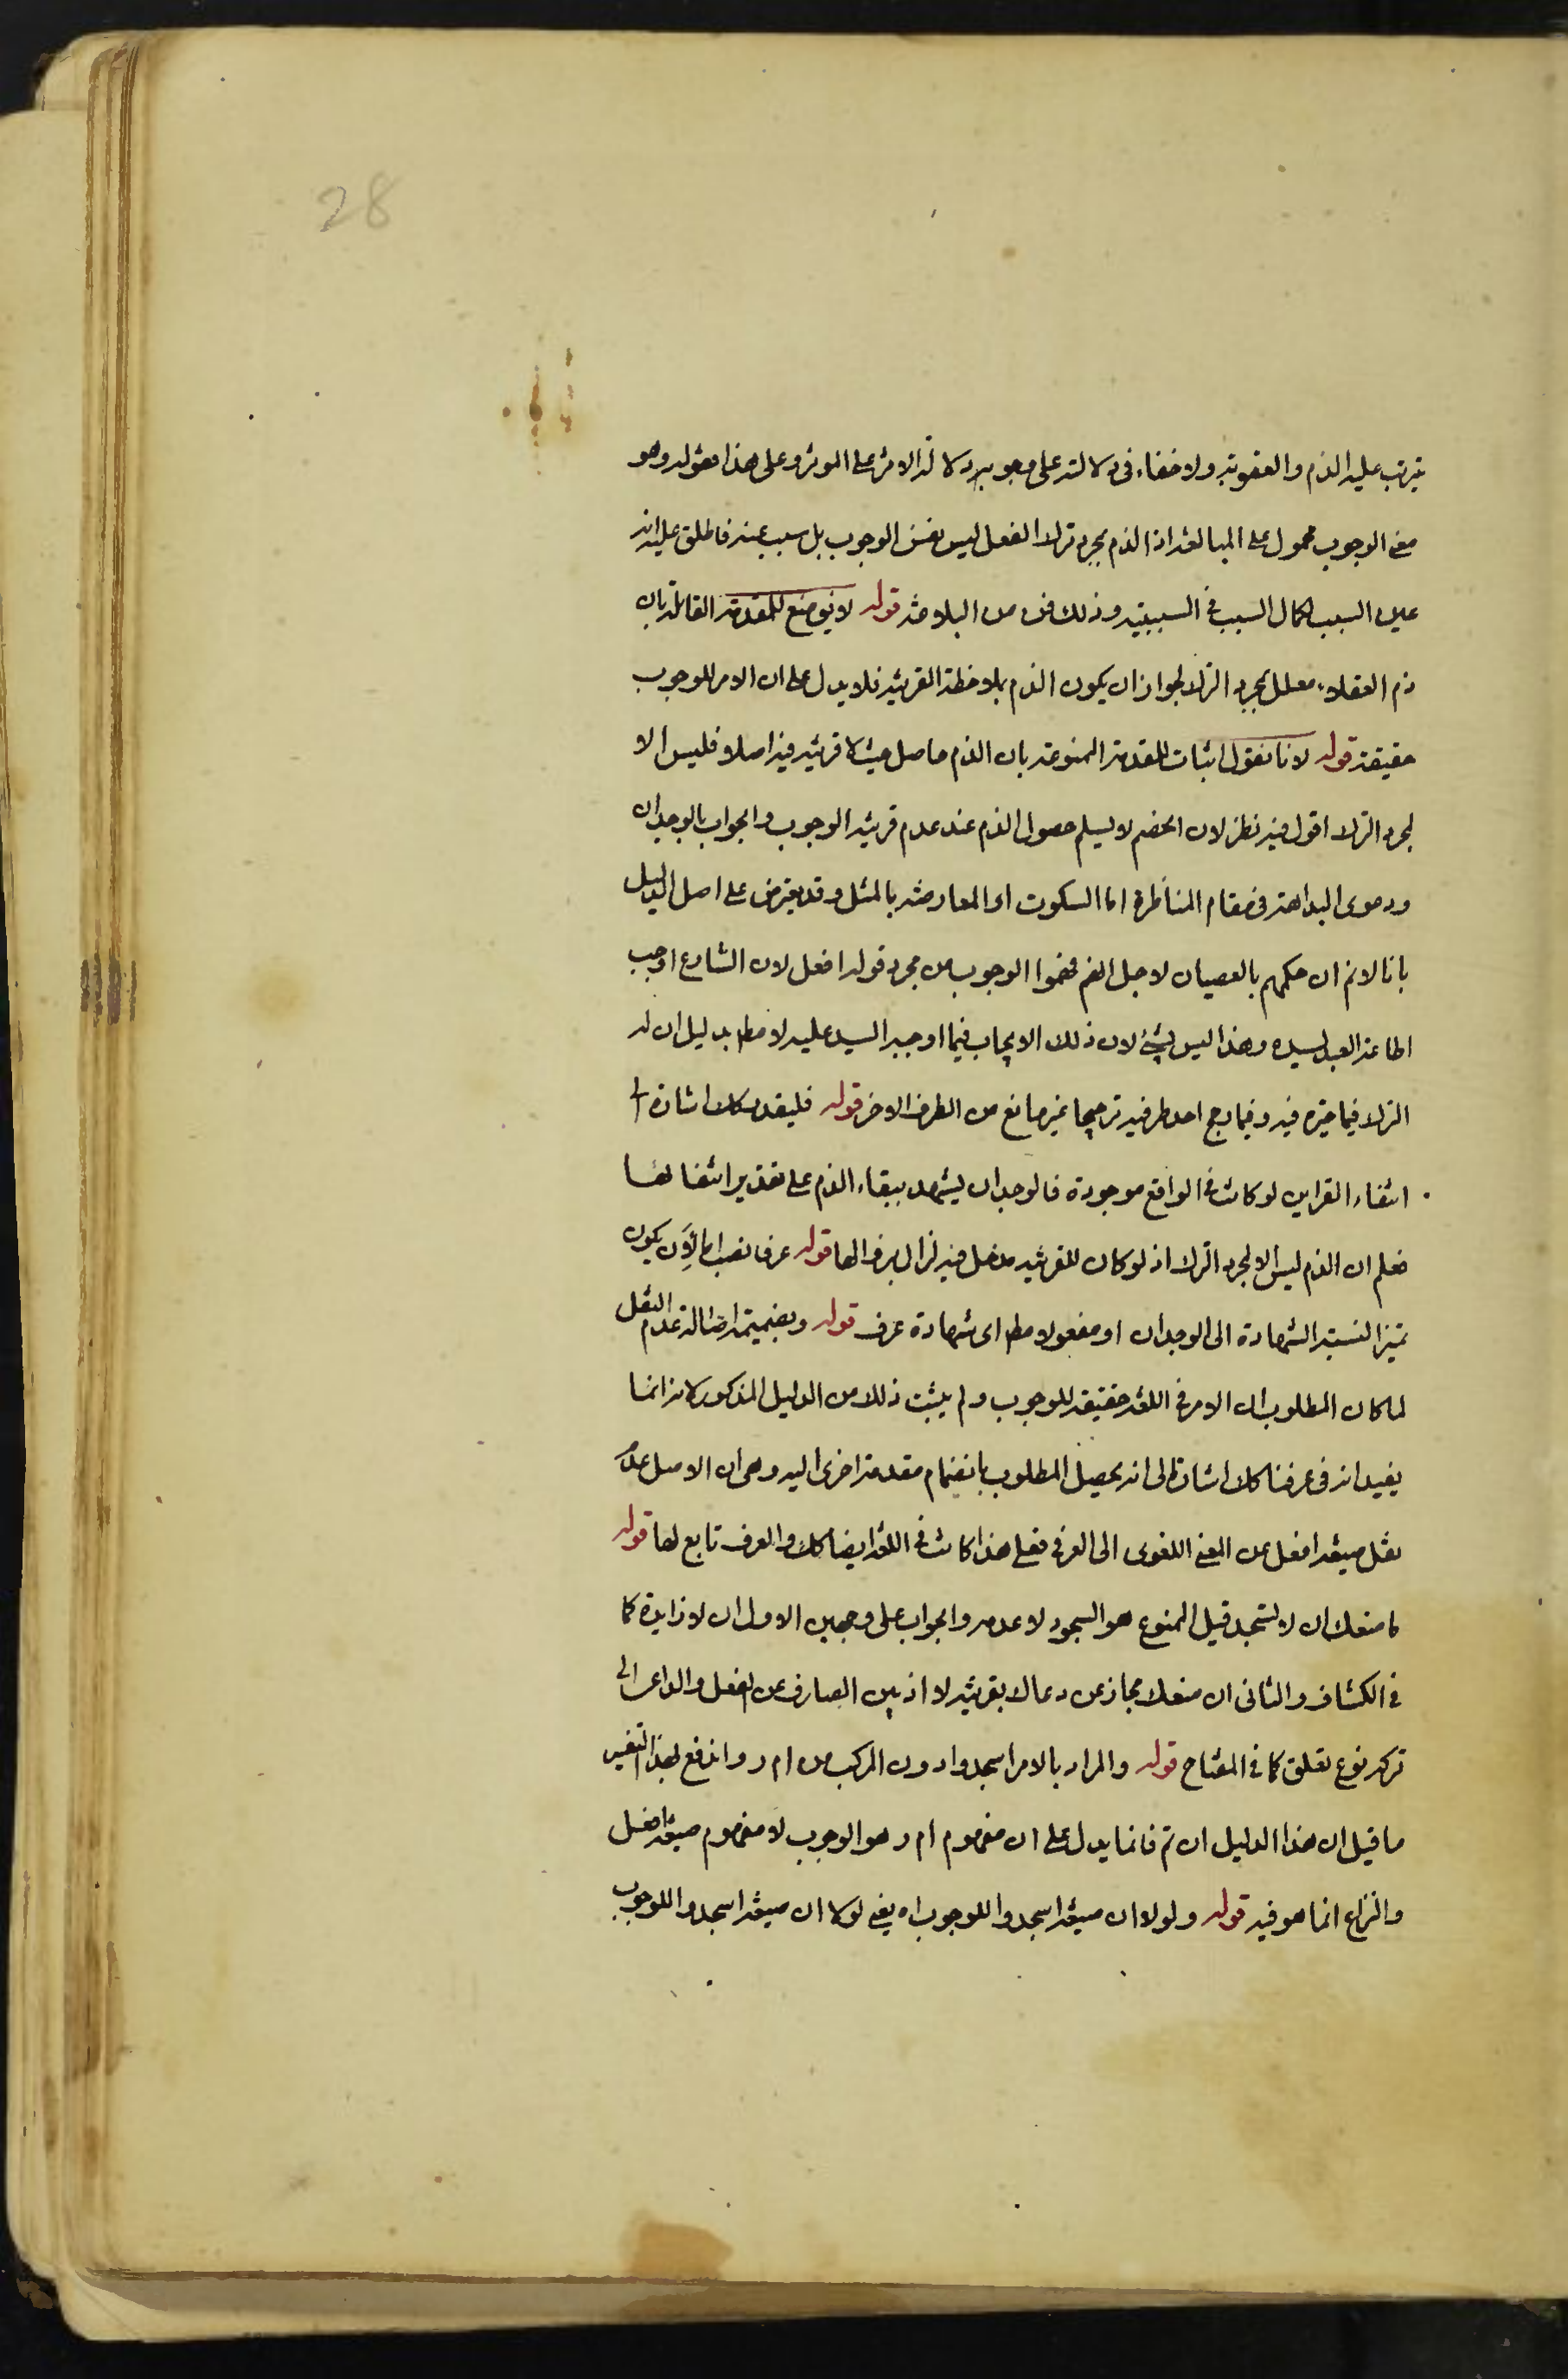 28
يترتب عليه الذم والعقوبة ولا خفاء في دلالته على وجوبه دلالة الاثر على الموثر وعلى هذا فقوله وهو
معنى الوجوب محمول على المبالغة اذ الذم بمجرد ترك الفعل ليس نفس الوجوب بل مسبب عنه فاطلق عليه انه
عين السبب لكمال السبب في السببية وذلك فن من البلاغة قوله لا يق منع للمقدمة القائلة بان
ذم العقلاء معلل بمجرد الترك لجواز ان يكون الذم بملاحظة القرينة فلا يدل على ان الامر للوجوب
حقيقة قوله لانا نقول اثبات للمقدمة الممنوعة بان الذم حاصل حيث لا قرينة فيه اصلا فليس الا
لمجرد الترك اقول فيه نظر لان الخصم لا يسلم حصول الذم عند عدم قرينة الوجوب والجواب بالوجدان
ودعوى البداهة في مقام المناظرة اما السكوت او المعارضة بالمثل وقد يعترض على اصل الدليل
بانا لا نم ان حكمهم بالعصيان لاجل انهم فهموا الوجوب من مجرد قوله افعل لان الشارع اوجب
اطاعة العبد لسيده وهذا ليس بشئ لان ذلك الايجاب فيما اوجبه السيد عليه لا مط بدليل ان له
الترك فيما خيره فيه وفيما رجح احد طرفيه ترجيحا غير مانع من الطرف الاخر قوله فليقدر كك اشارة الى
انتفاء القراين لو كانت في الواقع موجودة فالوجدان يشهد ببقاء الذم على تقدير انتفائها
فعلم ان الذم ليس الا لمجرد الترك اذ لو كان للقرينة مدخل فيه لزال بزوالها قوله عرفا نصب اما لان يكون
تميز النسبة الشهادة الى الوجدان او مفعولا مط اى شهادة عرف قوله وبضميمة اصالة عدم النقل
لما كان المطلوب ان الامر في اللغة حقيقة للوجوب ولم يثبت ذلك من الدليل المذكور لانه انما
يفيد انه في عرفنا كك اشار الى انه يحصل المطلوب بانضمام مقدمة اخرى اليه وهى ان الاصل عدم
نقل صيغة افعل من المعنى اللغوى الى العرفى فعلى هذا كانت في اللغة ايضا كك والعرف تابع لها قوله
ما منعك ان لا تسجد قيل الممنوع هو السجود لا عدمه والجواب على وجهين الاول ان لا زايدة كما
في الكشاف والثانى ان منعك مجاز عن دعاك بقرينة لا اذ بين الصارف عن الفعل والداعى الى
تركه نوع تعلق كما في المفتاح قوله والمراد بالامر اسجدوا دون المركب من ا م ر واندفع بهذا التفسير
ما قيل ان هذا الدليل ان تم فانما يدل على ان مفهوم ا م ر هو الوجوب لا مفهوم صيغة افعل
والنزاع انما هو فيه قوله ولولا ان صيغة اسجدوا للوجوب اه يعنى لولا ان صيغة اسجدوا للوجوب